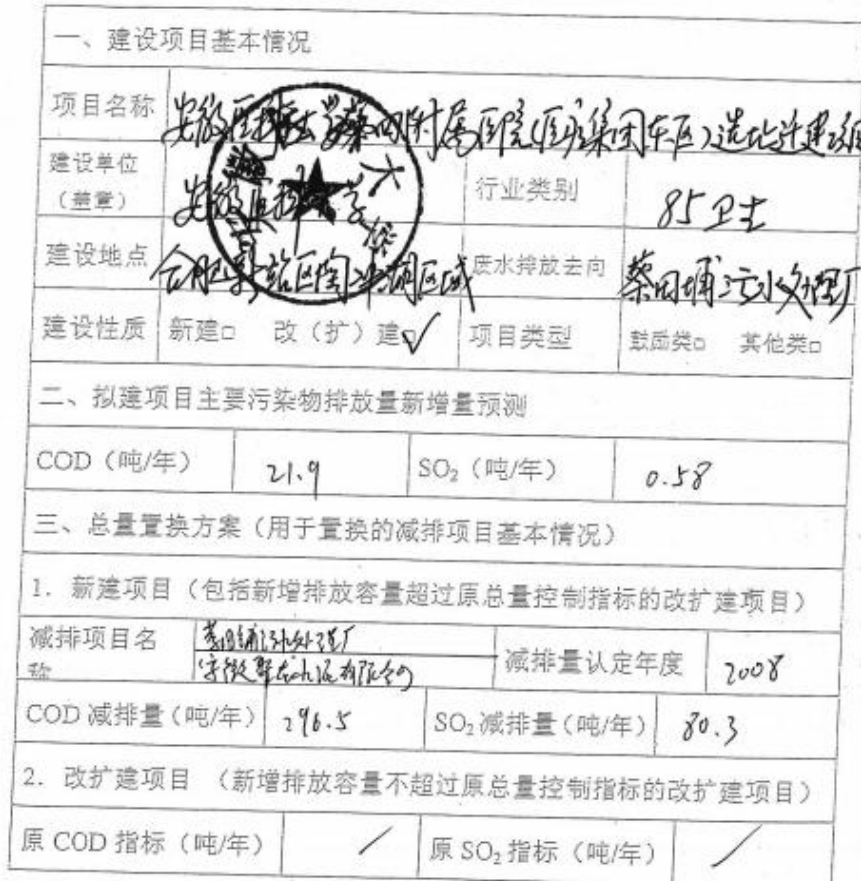 一、建设项目基本情况
项目名称 安徽医科大学 附属医院(医疗集团东区)选址并建
建设单位 安徽医科大学 行业类别 85卫生
(盖章)
建设地点 合肥新站区陶冲湖区域 废水排放去向 蔡田埔污水处理厂
建设性质 新建□ 改（扩）建□✓ 项目类型 鼓励类□ 其他类□
二、拟建项目主要污染物排放量新增量预测
COD（吨/年） 21.9 SO₂（吨/年） 0.58
三、总量置换方案（用于置换的减排项目基本情况）
1. 新建项目（包括新增排放容量超过原总量控制指标的改扩建项目）
减排项目名称 污水处理厂 减排量认定年度 2008
安徽 水泥有限公司
COD 减排量（吨/年） 296.5 SO₂ 减排量（吨/年） 80.3
2. 改扩建项目 （新增排放容量不超过原总量控制指标的改扩建项目）
原 COD 指标（吨/年） / 原 SO₂ 指标（吨/年） /